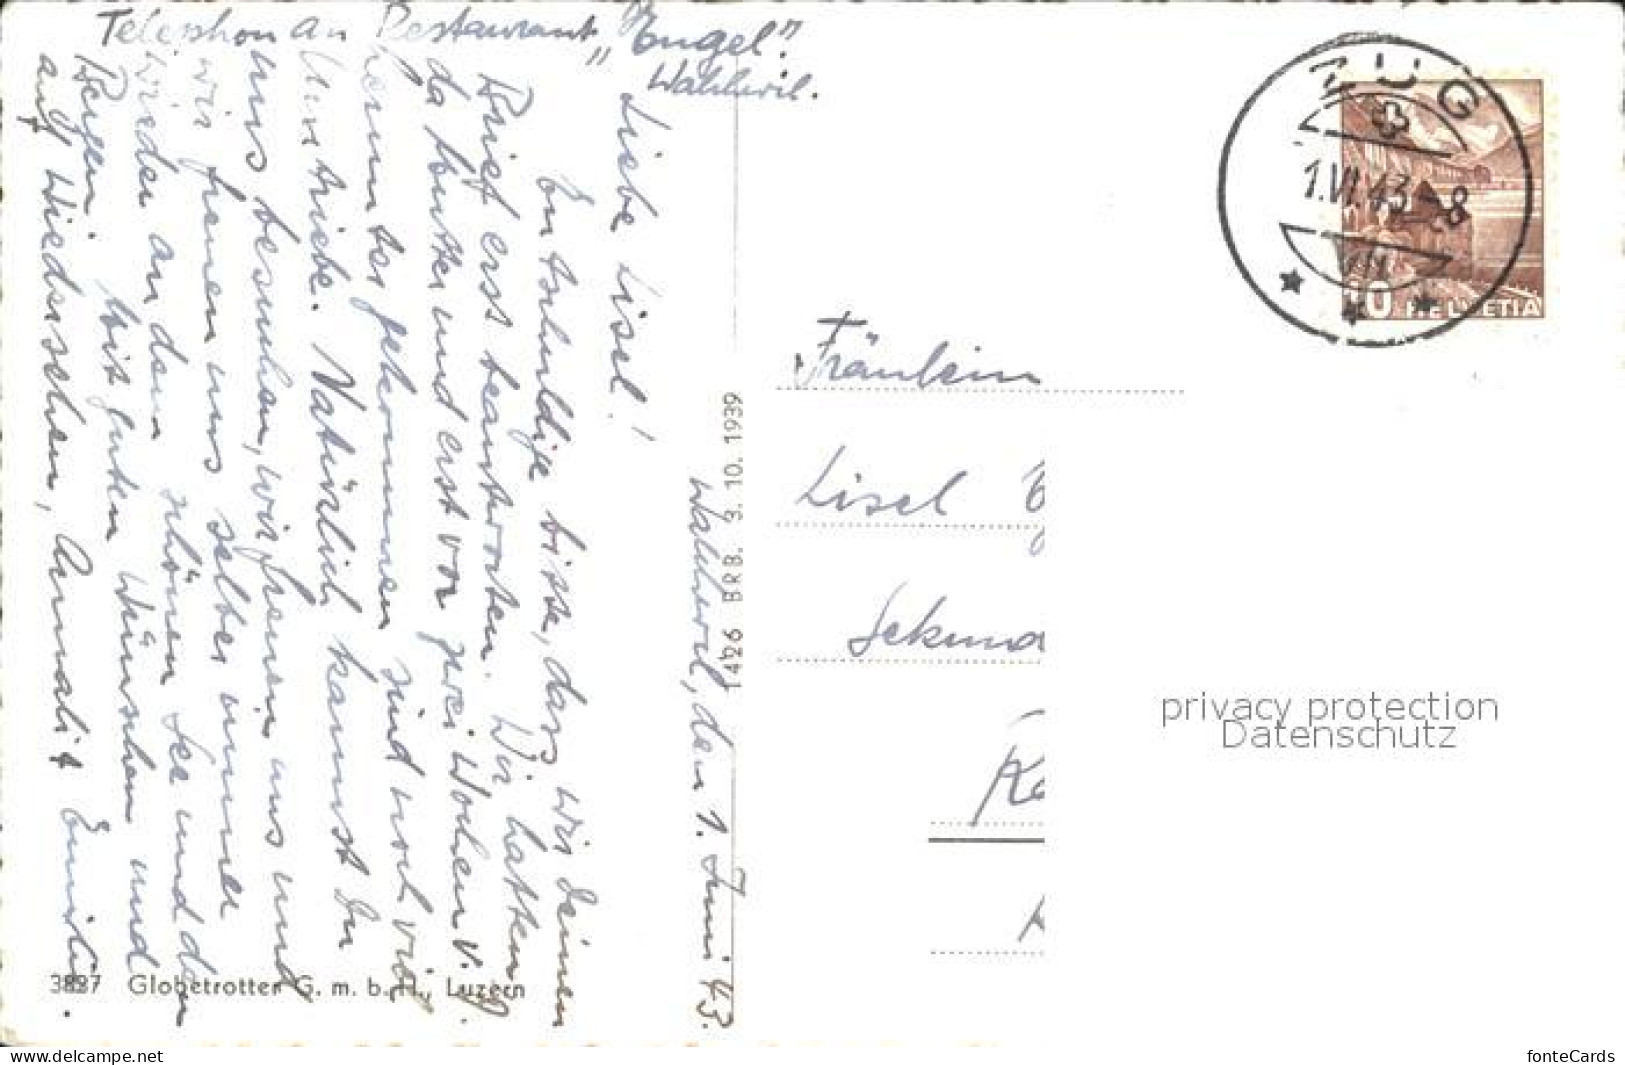 Telephon an Restaurant „Engel".
Walchwil.
Walchwil, den 1. Juni 43.
Liebe Lisel!
Entschuldige bitte, dass wir Deinen
Brief erst beantworten. Wir hatten
da Futter und erst vor zwei Wochen v.
herunter gekommen sind noch viel
Umtriebe. Natürlich kannst Du
uns besuchen, wir freuen uns und
wir freuen uns selber immer
wieder an dem schönen See und den
Bergen. Mit guten Wünschen und
auf Wiedersehen, Annalis Emilie.
1426 BRB. 3. 10. 1939
3887 Globetrotter G. m. b. H., Luzern
ZUG
1.VI.43-8
VII
10 HELVETIA
Fräulein
Lisel
Sekund
privacy protection
Datenschutz
www.delcampe.net
fonteCards